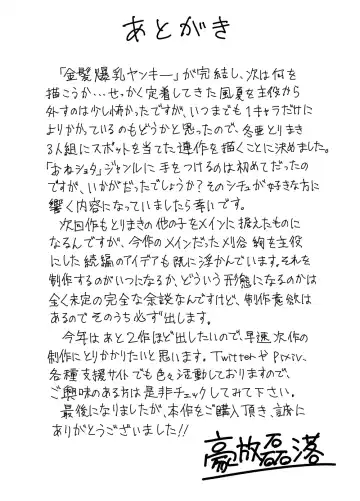 あとがき
「金髪爆乳ヤンキー」が完結し、次は何を
描こうか…せっかく定着してきた風夏を主役から
外すのは少し怖かったですが、いつまでも1キャラだけに
よりかかっているのもどうかと思ったので、各要とりまき
3人組にスポットを当てた連作を描くことに決めました。
「おねショタ」ジャンルに手をつけるのは初めてだったの
ですが、いかがだったでしょうか?そのシチュが好きな方に
響く内容になっていましたら幸いです。
次回作もとりまきの他の子をメインに据えたものに
なるんですが、今作のメインだった刈谷 絢を主役
にした続編のアイデアも既に浮かんでいます。それを
制作するのがいつになるか、どういう形態になるのかは
全く未定の完全な余談なんですけど、制作意欲は
あるのでそのうち必ず出します。
今年はあと2作ほど出したいので、早速次作の
制作にとりかかりたいと思います。Twitterやpixiv、
各種支援サイトでも色々活動しておりますので、
ご興味のある方は是非チェックしてみて下さい。
最後になりましたが、本作をご購入頂き、誠に
ありがとうございました!!
豪放磊落